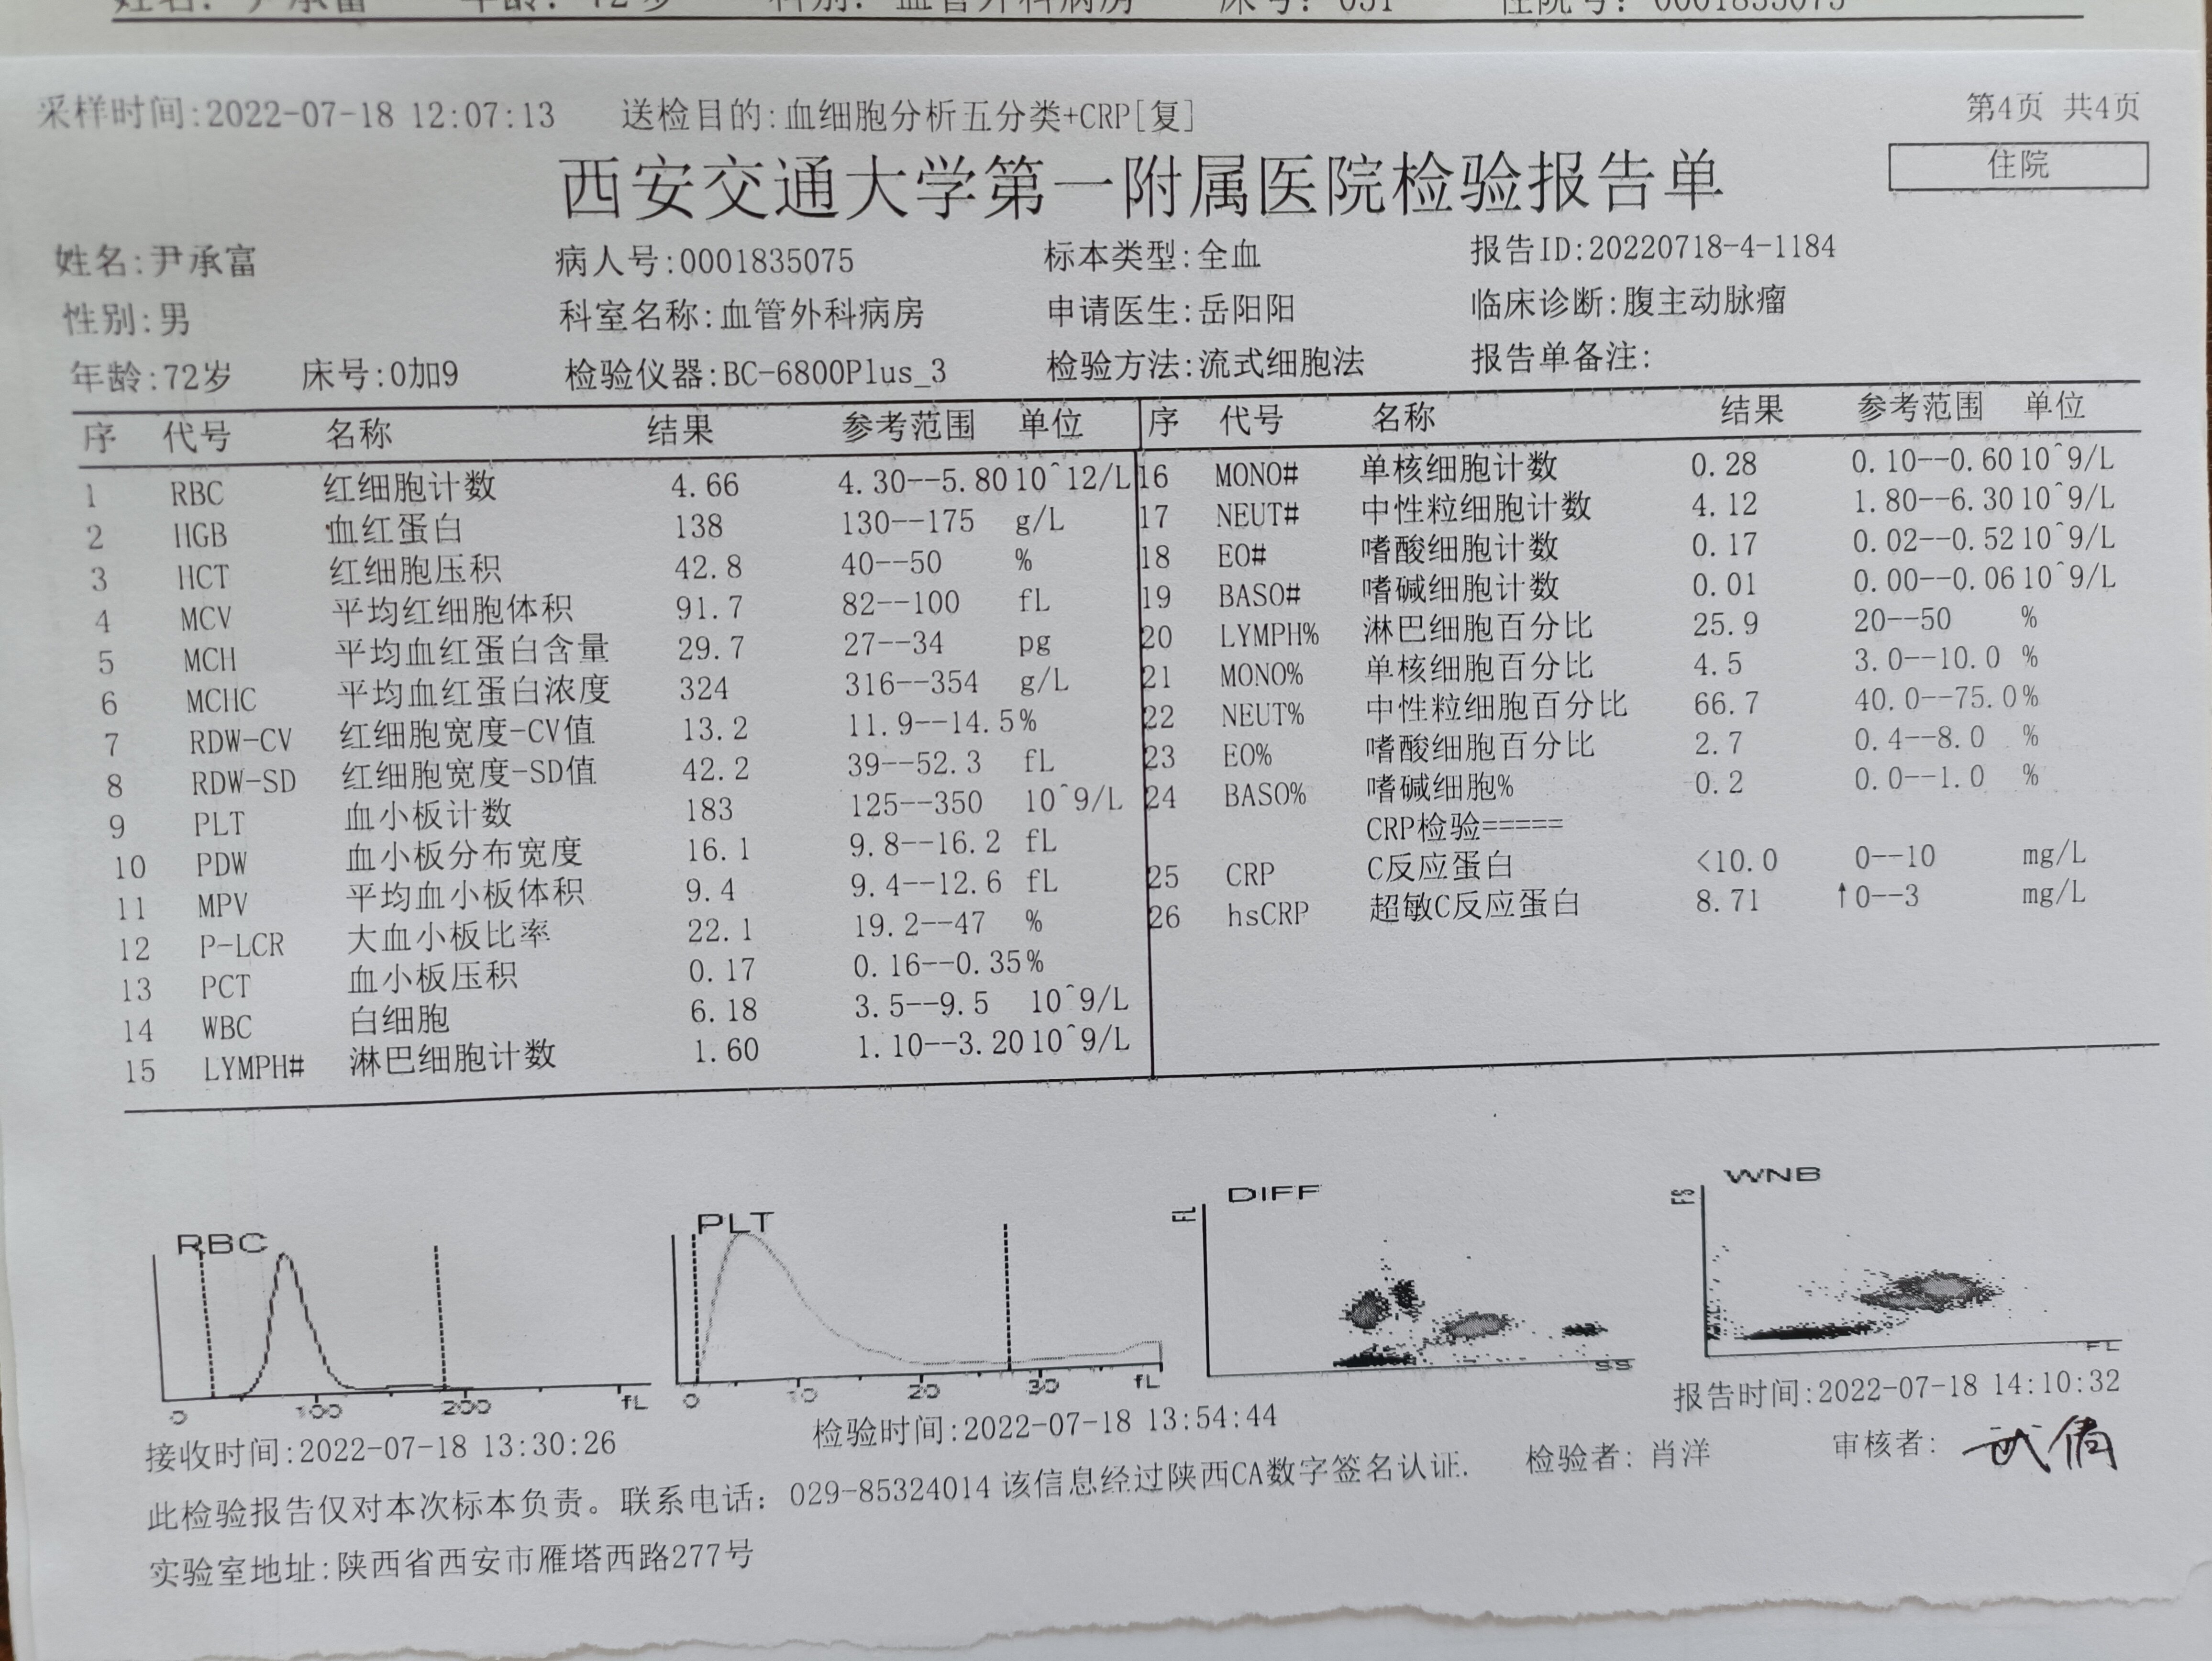 姓名: 尹承富 年龄: 72岁 科别: 血管外科病房 床号: 031 住院号: 0001835075
采样时间:2022-07-18 12:07:13 送检目的:血细胞分析五分类+CRP[复] 第4页 共4页
西安交通大学第一附属医院检验报告单 住院
姓名:尹承富 病人号:0001835075 标本类型:全血 报告ID:20220718-4-1184
性别:男 科室名称:血管外科病房 申请医生:岳阳阳 临床诊断:腹主动脉瘤
年龄:72岁 床号:0加9 检验仪器:BC-6800Plus_3 检验方法:流式细胞法 报告单备注:
序 代号 名称 结果 参考范围 单位 序 代号 名称 结果 参考范围 单位
1 RBC 红细胞计数 4.66 4.30--5.80 10^12/L 16 MONO# 单核细胞计数 0.28 0.10--0.60 10^9/L
2 HGB 血红蛋白 138 130--175 g/L 17 NEUT# 中性粒细胞计数 4.12 1.80--6.30 10^9/L
3 HCT 红细胞压积 42.8 40--50 % 18 EO# 嗜酸细胞计数 0.17 0.02--0.52 10^9/L
4 MCV 平均红细胞体积 91.7 82--100 fL 19 BASO# 嗜碱细胞计数 0.01 0.00--0.06 10^9/L
5 MCH 平均血红蛋白含量 29.7 27--34 pg 20 LYMPH% 淋巴细胞百分比 25.9 20--50 %
6 MCHC 平均血红蛋白浓度 324 316--354 g/L 21 MONO% 单核细胞百分比 4.5 3.0--10.0 %
7 RDW-CV 红细胞宽度-CV值 13.2 11.9--14.5 % 22 NEUT% 中性粒细胞百分比 66.7 40.0--75.0 %
8 RDW-SD 红细胞宽度-SD值 42.2 39--52.3 fL 23 EO% 嗜酸细胞百分比 2.7 0.4--8.0 %
9 PLT 血小板计数 183 125--350 10^9/L 24 BASO% 嗜碱细胞% 0.2 0.0--1.0 %
10 PDW 血小板分布宽度 16.1 9.8--16.2 fL CRP检验=====
11 MPV 平均血小板体积 9.4 9.4--12.6 fL 25 CRP C反应蛋白 <10.0 0--10 mg/L
12 P-LCR 大血小板比率 22.1 19.2--47 % 26 hsCRP 超敏C反应蛋白 8.71 ↑ 0--3 mg/L
13 PCT 血小板压积 0.17 0.16--0.35 %
14 WBC 白细胞 6.18 3.5--9.5 10^9/L
15 LYMPH# 淋巴细胞计数 1.60 1.10--3.20 10^9/L
RBC PLT FL DIFF FS WNB
0 100 200 fL 0 10 20 30 fL SS FL
接收时间:2022-07-18 13:30:26 检验时间:2022-07-18 13:54:44 报告时间:2022-07-18 14:10:32
此检验报告仅对本次标本负责。联系电话: 029-85324014 该信息经过陕西CA数字签名认证. 检验者: 肖洋 审核者: 武倩
实验室地址:陕西省西安市雁塔西路277号